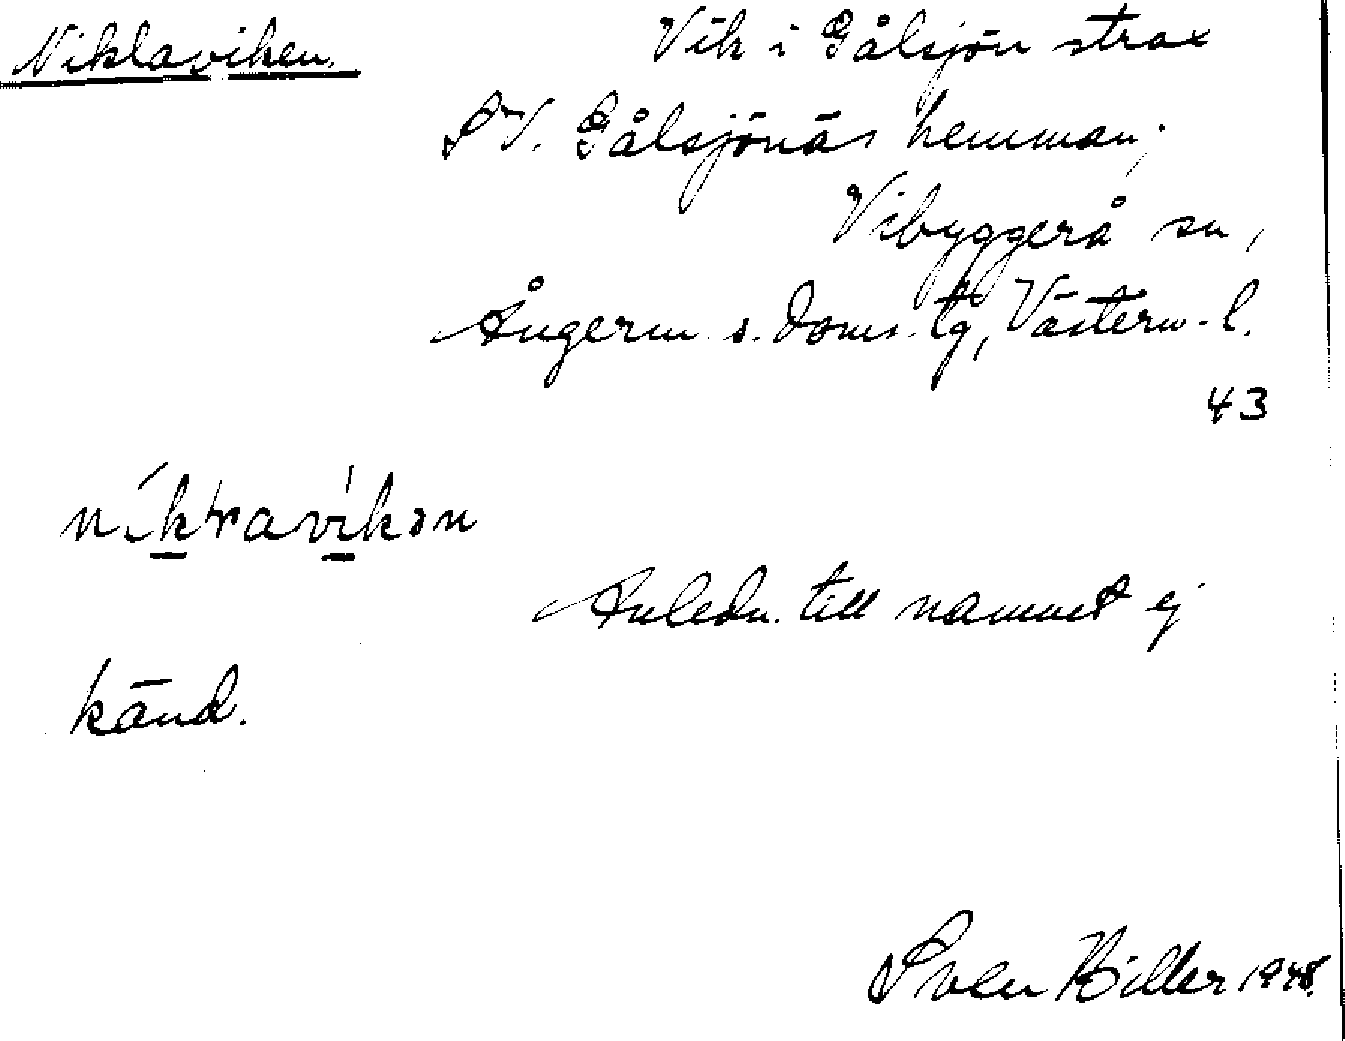 Niklaviken. Vik i Gålsjön strax
SV. Gålsjönäs hemman;
Vibyggerå sn,
Ångerm. s. doms. tg, Västern. l.
43
Anledn. till namnet ej
känd.
Sven Hiller 1948.